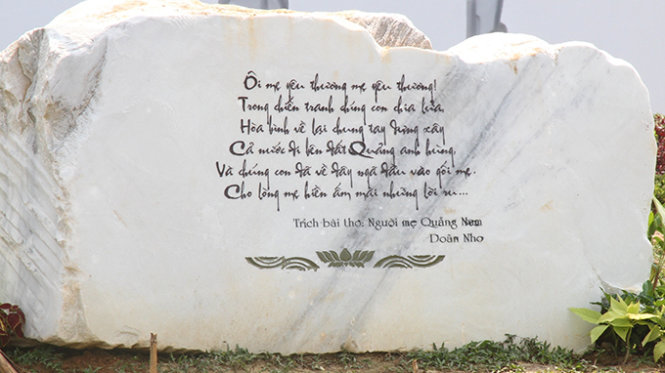 Ôi mẹ yêu thương mẹ yêu thương!
Trong chiến tranh chúng con chia lửa
Hòa bình về lại chung tay dựng xây
Cả nước đi lên đất Quảng anh hùng
Và chúng con đã về đây ngã đầu vào gối mẹ.
Cho lòng mẹ hiền ấm mãi những lời ru...
Trích bài thơ: Người mẹ Quảng Nam
Doãn Nho